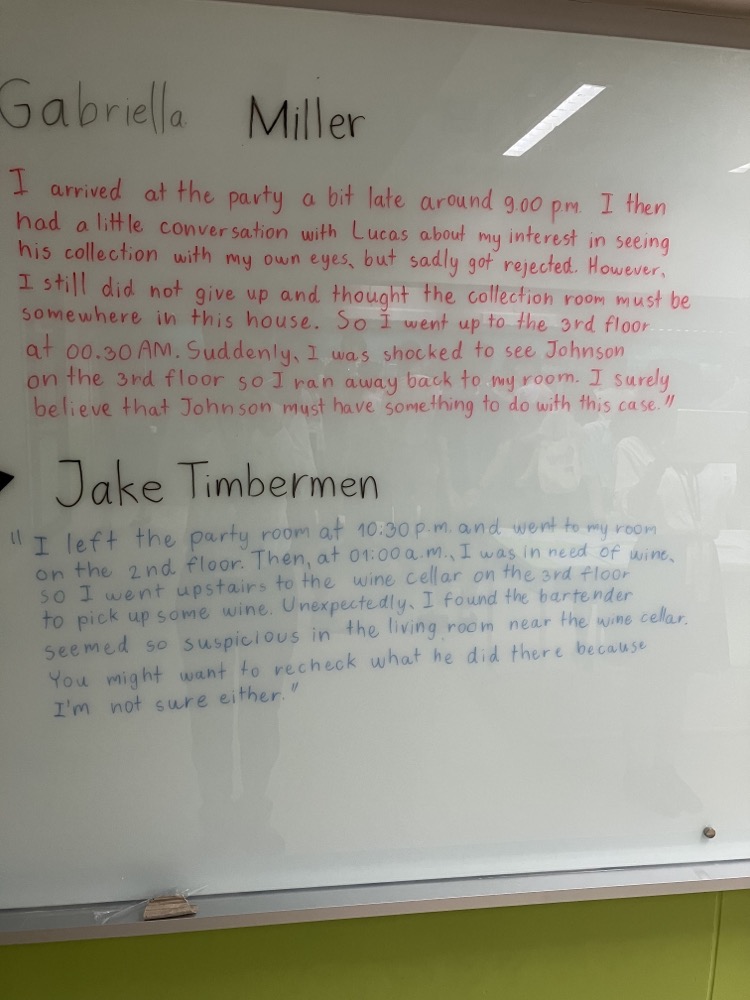 Gabriella Miller
I arrived at the party a bit late around 9.00 pm. I then
had a little conversation with Lucas about my interest in seeing
his collection with my own eyes, but sadly got rejected. However,
I still did not give up and thought the collection room must be
somewhere in this house. So I went up to the 3rd floor
at 00.30 AM. Suddenly, I was shocked to see Johnson
on the 3rd floor so I ran away back to my room. I surely
believe that Johnson must have something to do with this case."
Jake Timbermen
"I left the party room at 10:30 p.m. and went to my room
on the 2nd floor. Then, at 01:00 a.m., I was in need of wine,
so I went upstairs to the wine cellar on the 3rd floor
to pick up some wine. Unexpectedly, I found the bartender
seemed so suspicious in the living room near the wine cellar.
You might want to recheck what he did there because
I'm not sure either."